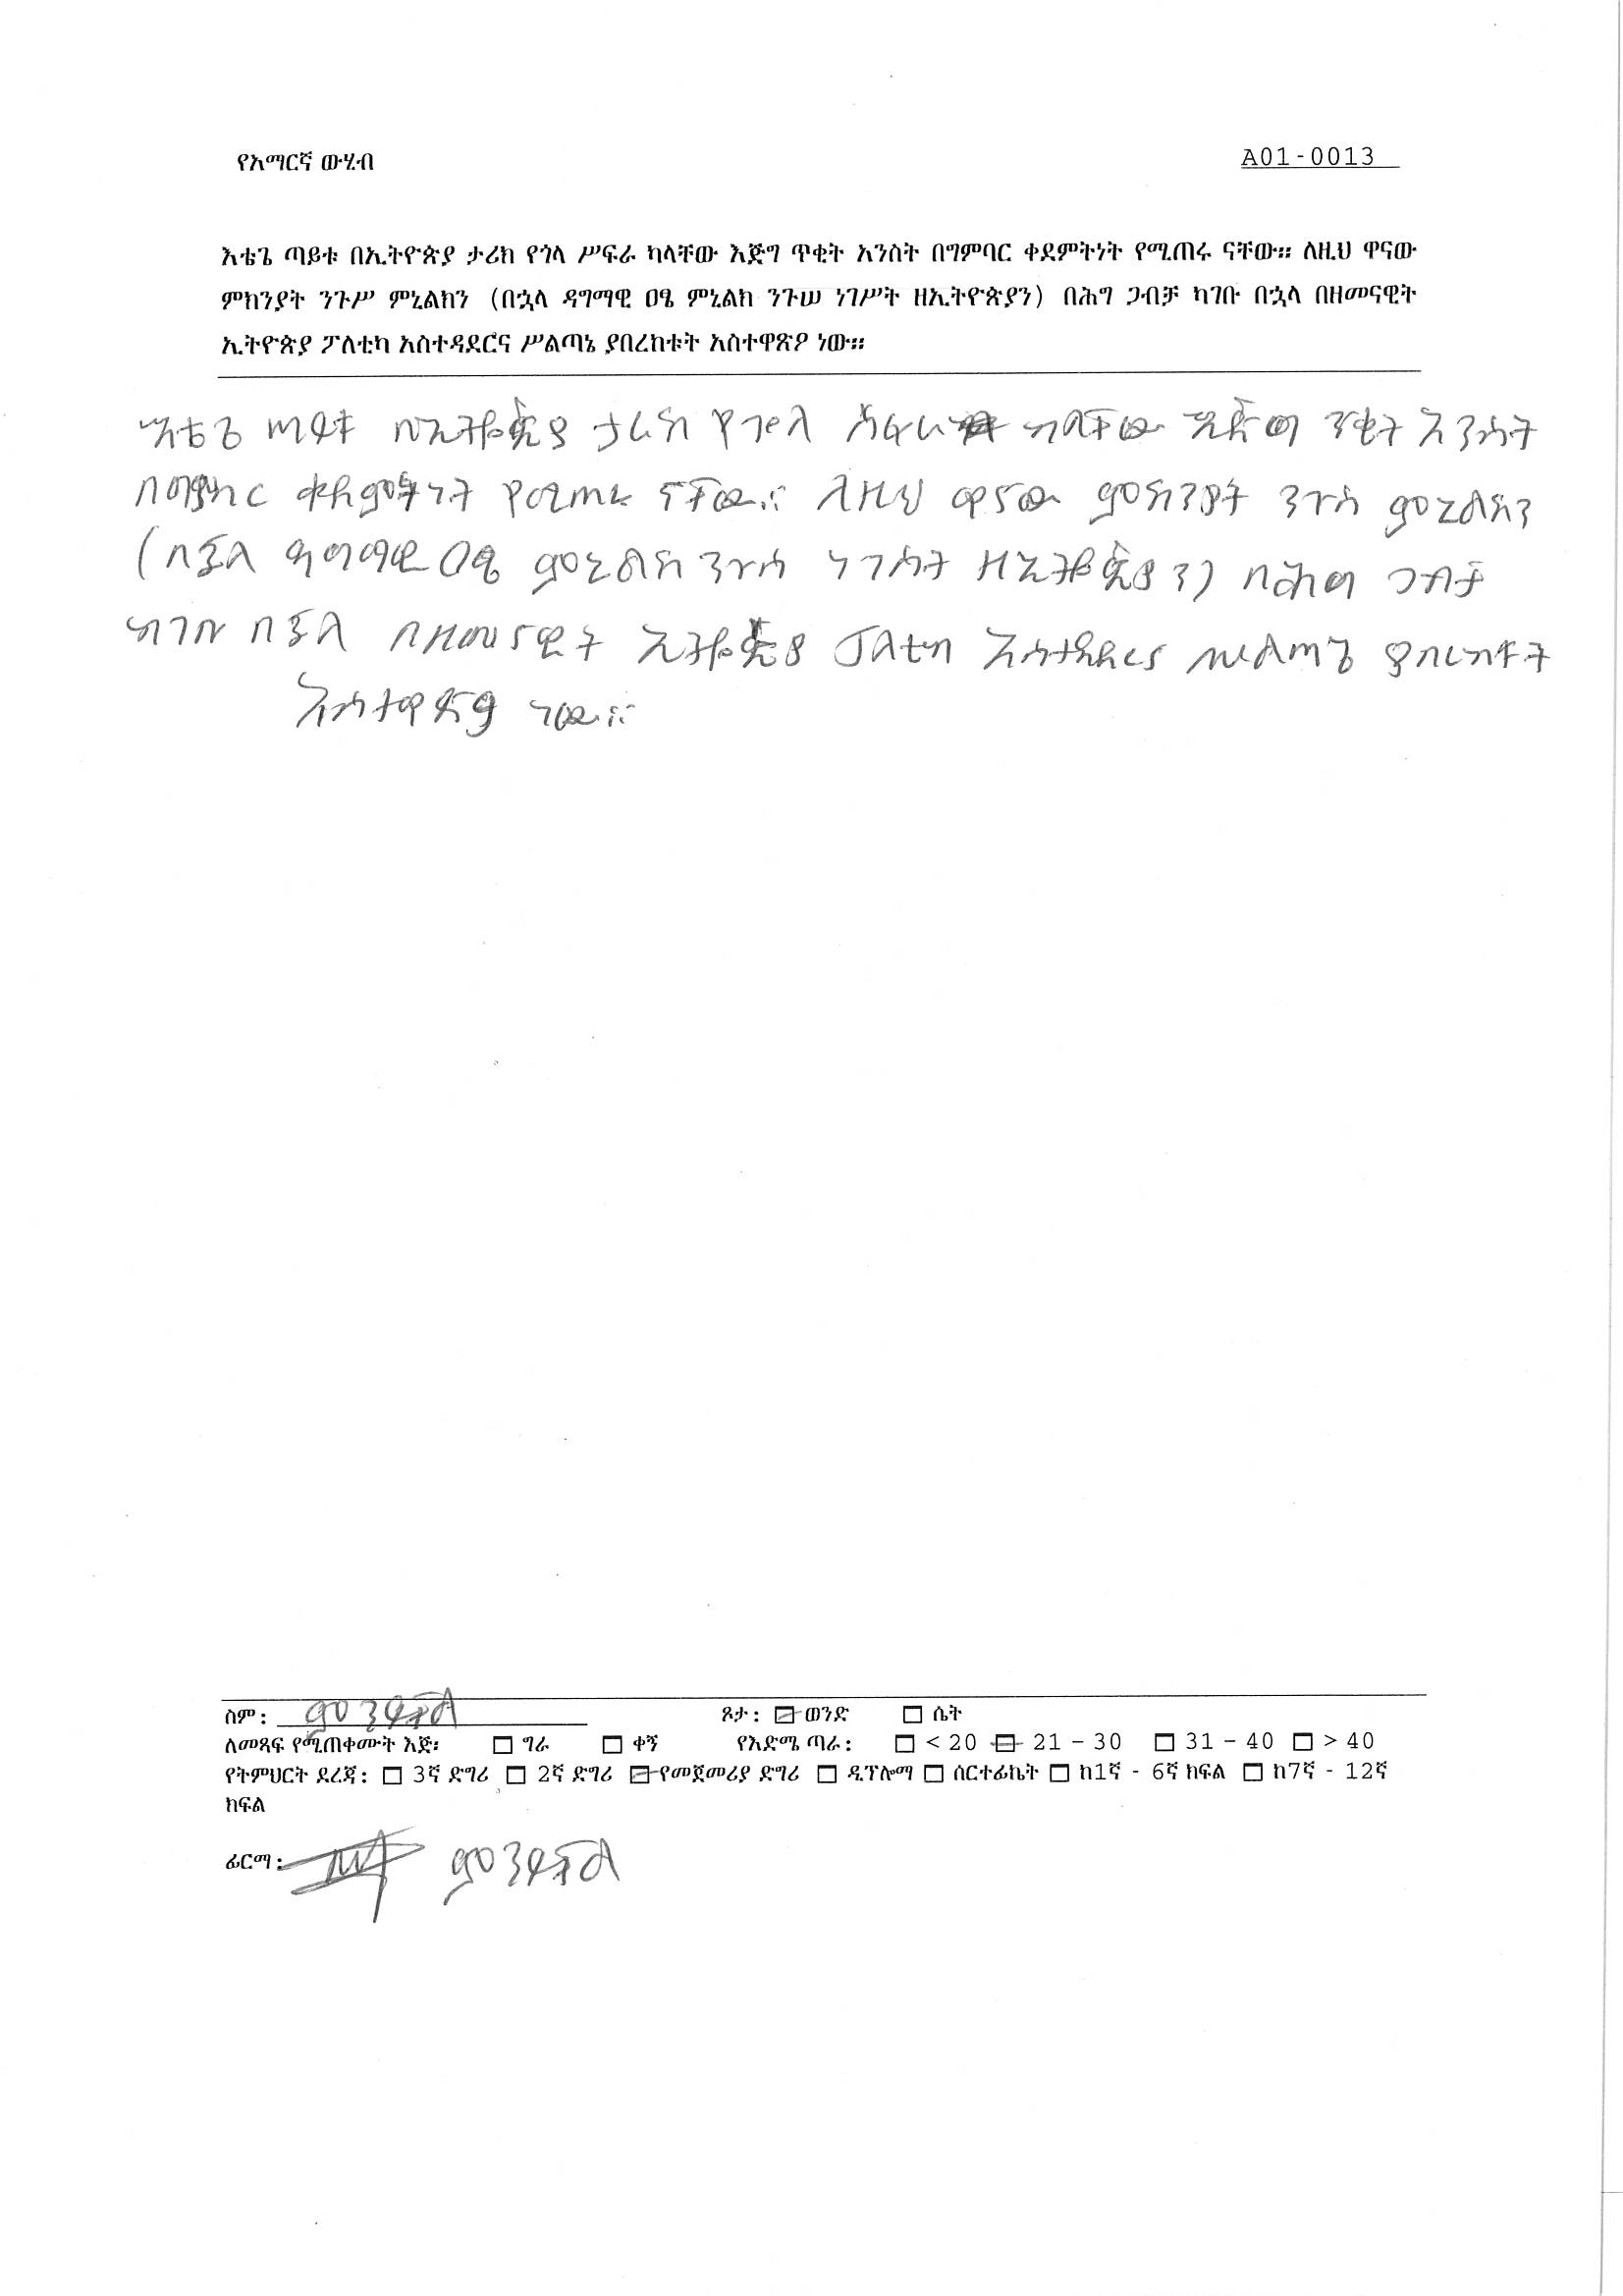 የአማርኛ ውሂብ A01-0013
እቴጌ ጣይቱ በኢትዮጵያ ታሪክ የጎላ ሥፍራ ካላቸው እጅግ ጥቂት አንስት በግምባር ቀደምትነት የሚጠሩ ናቸው። ለዚህ ዋናው
ምክንያት ንጉሥ ምኒልክን (በኋላ ዳግማዊ ዐፄ ምኒልክ ንጉሠ ነገሥት ዘኢትዮጵያን) በሕግ ጋብቻ ካገቡ በኋላ በዘመናዊት
ኢትዮጵያ ፖለቲካ አስተዳደርና ሥልጣኔ ያበረከቱት አስተዋጽዖ ነው።
እቴጌ ጣይቱ በኢትዮጵያ ታሪክ የጎላ ስፍራ ካላቸው እጅግ ጥቂት አንስት
በግምባር ቀደምትነት የሚጠሩ ናቸው። ለዚህ ዋናው ምክንያት ንጉስ ምኒልክን
(በኋላ ዳግማዊ ዐፄ ምኒልክ ንጉሰ ነገስት ዘኢትዮጵያን) በሕግ ጋብቻ
ካገቡ በኋላ በዘመናዊት ኢትዮጵያ ፖለቲካ አስተዳደርና ሥልጣኔ ያበረከቱት
አስተዋጽዖ ነው።
ስም: ጾታ: ወንድ ሴት
ለመጻፍ የሚጠቀሙት እጅ፡ ግራ ቀኝ የእድሜ ጣራ: < 20 21 – 30 31 – 40 > 40
የትምህርት ደረጃ: 3ኛ ድግሪ 2ኛ ድግሪ የመጀመሪያ ድግሪ ዲፕሎማ ሰርተፊኬት ከ1ኛ - 6ኛ ክፍል ከ7ኛ - 12ኛ
ክፍል
ፊርማ: